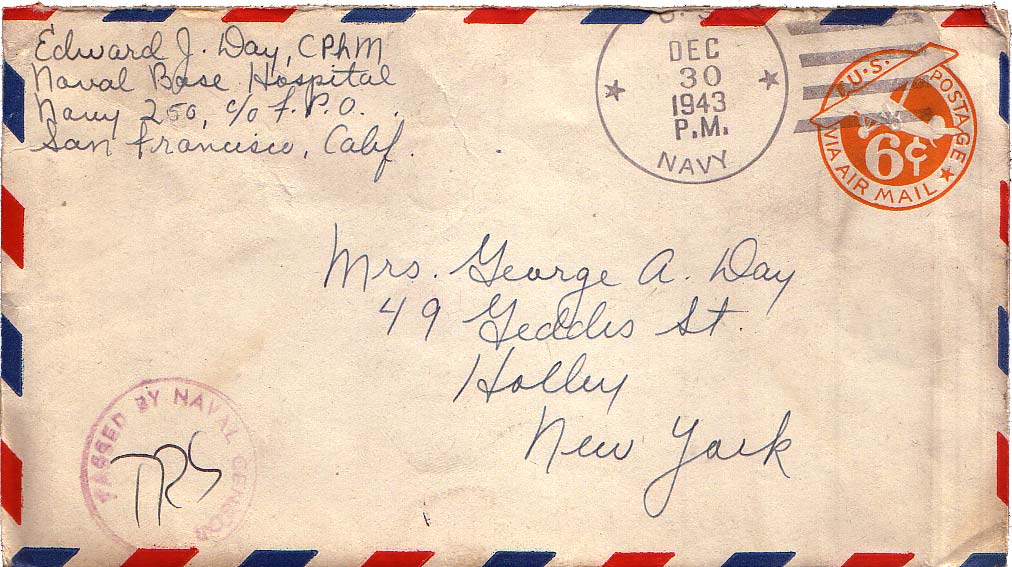 Edward J. Day, CPhM
Naval Base Hospital
Navy 250, c/o F.P.O.
San Francisco, Calif.
U.S.
DEC
30
1943
P.M.
NAVY
U.S. POSTAGE
6¢
VIA AIR MAIL
Mrs. George A. Day
49 Geddes St.
Holley
New York
PASSED BY NAVAL CENSOR
TRS